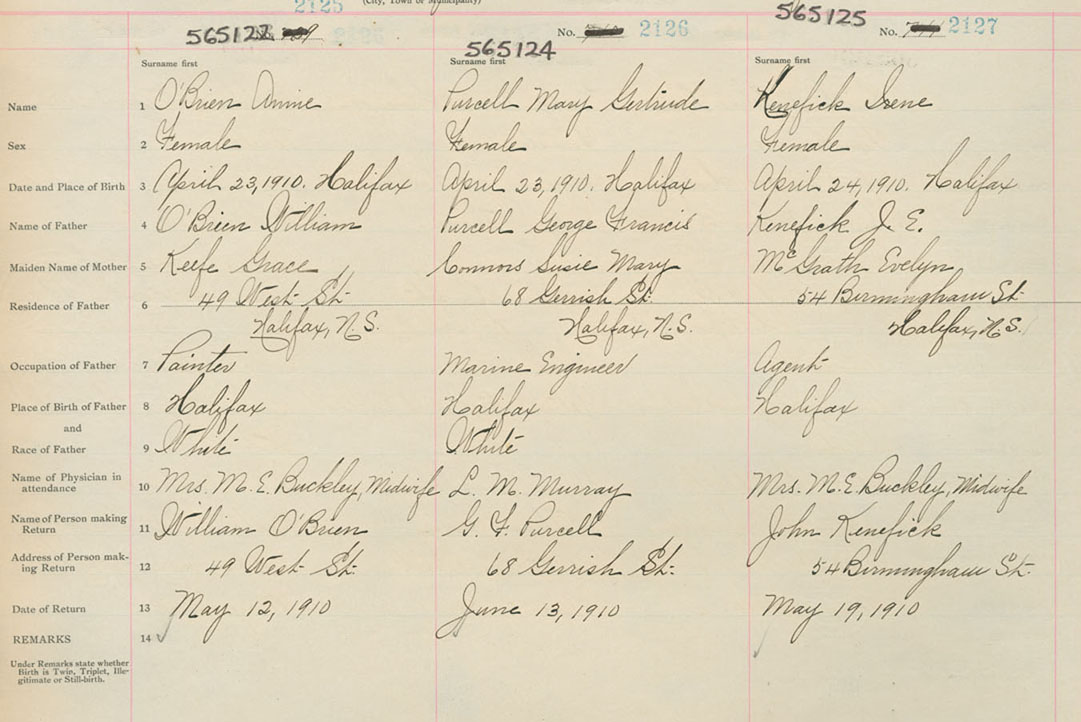 2125
(City, Town or Municipality)
No. 2126
565125
No. 2127
565124
Surname first Surname first Surname first
Name 1 O'Brien Annie Purcell Mary Gertrude Kenefick Irene
Sex 2 Female Female Female
Date and Place of Birth 3 April 23, 1910. Halifax April 23, 1910. Halifax April 24, 1910. Halifax
Name of Father 4 O'Brien William Purcell George Francis Kenefick J. E.
Maiden Name of Mother 5 Keefe Grace Connors Susie Mary McGrath Evelyn
Residence of Father 6 49 West St. 68 Gerrish St. 54 Birmingham St.
Halifax, N.S. Halifax, N.S. Halifax, N.S.
Occupation of Father 7 Painter Marine Engineer Agent
Place of Birth of Father 8 Halifax Halifax Halifax
and
Race of Father 9 White White
Name of Physician in attendance 10 Mrs. M. E. Buckley, Midwife L. M. Murray Mrs. M. E. Buckley, Midwife
Name of Person making Return 11 William O'Brien G. F. Purcell John Kenefick
Address of Person mak-
ing Return 12 49 West St. 68 Gerrish St. 54 Birmingham St.
Date of Return 13 May 12, 1910 June 13, 1910 May 19, 1910
REMARKS 14
Under Remarks state whether
Birth is Twin, Triplet, Ille-
gitimate or Still-birth.